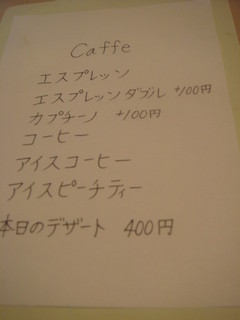 Caffe
エスプレッソ
エスプレッソダブル +100円
カプチーノ +100円
コーヒー
アイスコーヒー
アイスピーチティー
本日のデザート 400円